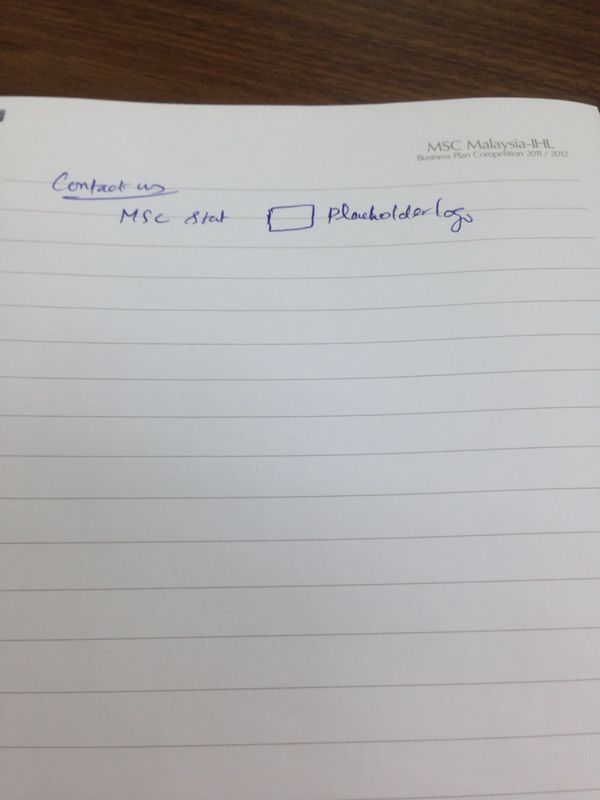 MSC Malaysia-IHL
Business Plan Competition 2011 / 2012
Contact us
MSC Stat Placeholder logo